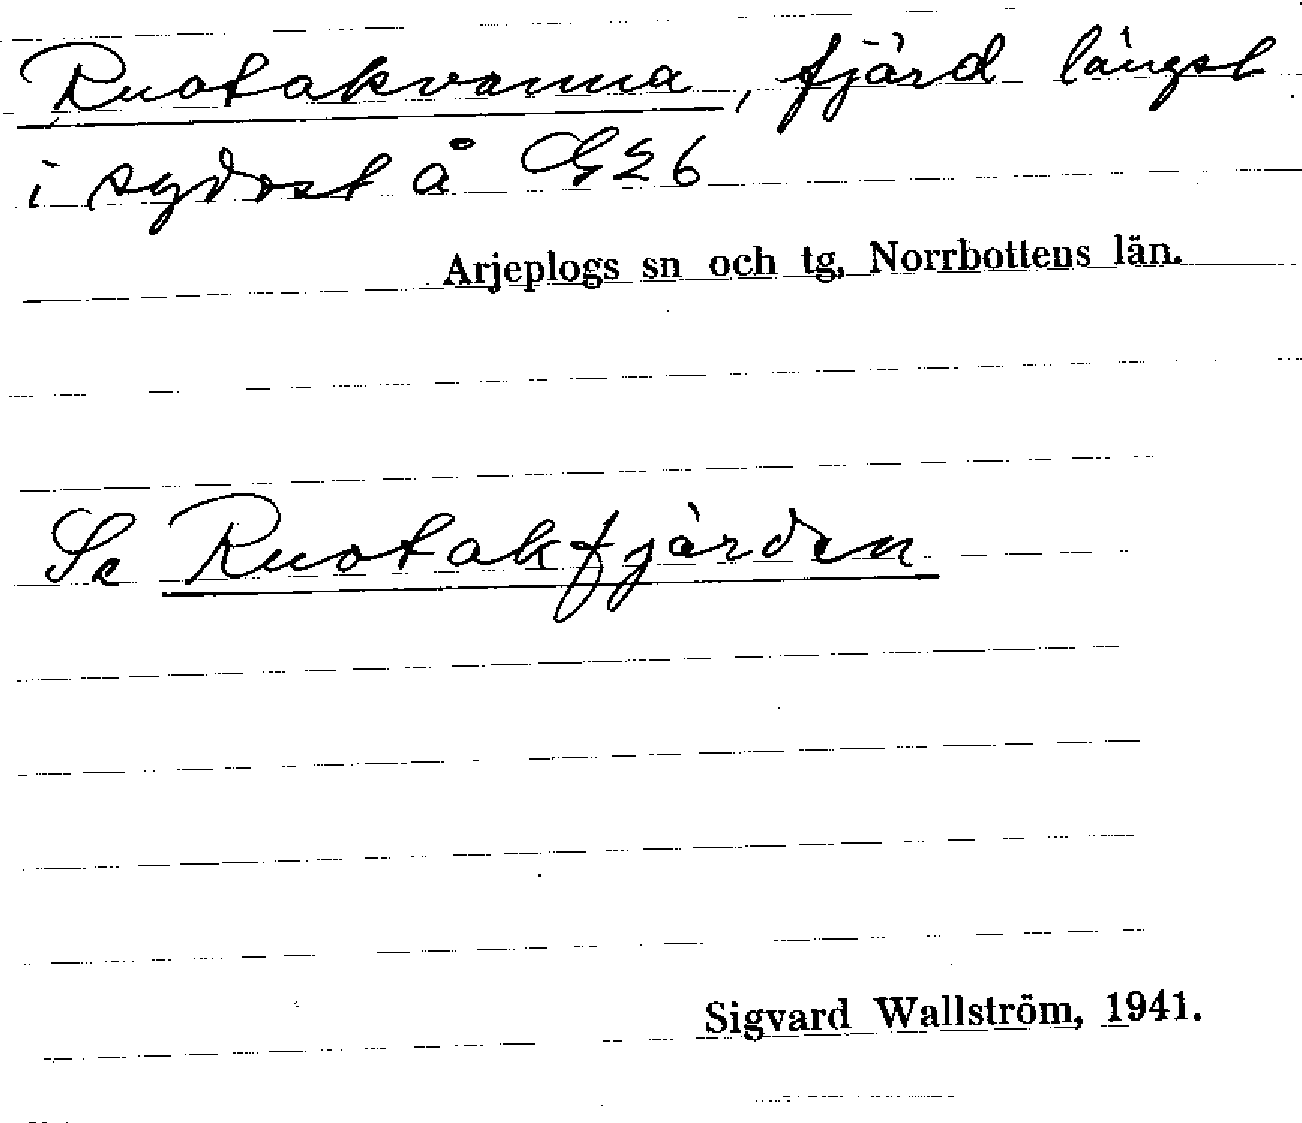 Ruotakvanna, fjärd längst
i sydost å GΣ6
Arjeplogs sn och tg, Norrbottens län.
Se Ruotakfjärden
Sigvard Wallström, 1941.